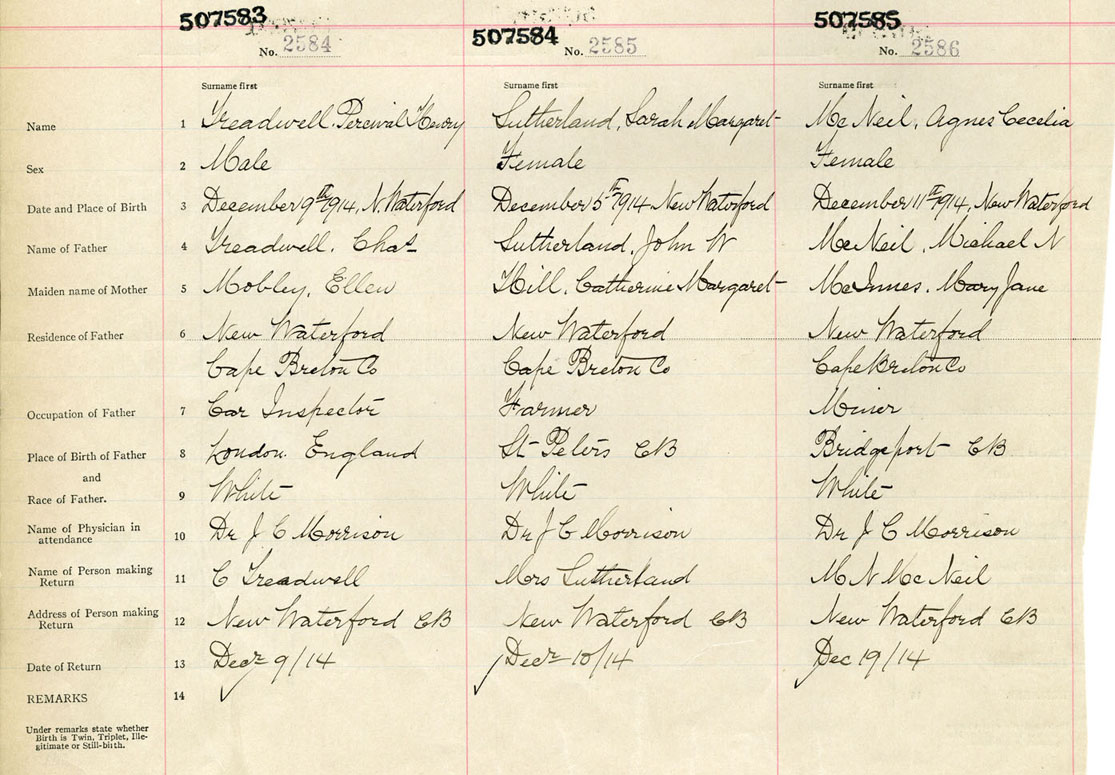 507583 507584 507585
No. 2584 No. 2585 No. 2586
Surname first Surname first Surname first
Name 1 Treadwell. Percival Henry Sutherland, Sarah Margaret McNeil, Agnes Cecelia
Sex 2 Male Female Female
Date and Place of Birth 3 December 9th 1914, N. Waterford December 5th 1914 New Waterford December 11th 1914, New Waterford
Name of Father 4 Treadwell. Chas Sutherland, John W McNeil, Michael N
Maiden name of Mother 5 Mobley, Ellen Hill, Catherine Margaret McInnes, Mary Jane
Residence of Father 6 New Waterford New Waterford New Waterford
Cape Breton Co Cape Breton Co Cape Breton Co
Occupation of Father 7 Car Inspector Farmer Miner
Place of Birth of Father 8 London England St Peters CB Bridgeport CB
and
Race of Father. 9 White White White
Name of Physician in
attendance 10 Dr J C Morrison Dr J C Morrison Dr J C Morrison
Name of Person making
Return 11 C Treadwell Mrs Sutherland M N McNeil
Address of Person making
Return 12 New Waterford CB New Waterford CB New Waterford CB
Date of Return 13 Decr 9/14 Decr 10/14 Dec 19/14
REMARKS 14
Under remarks state whether
Birth is Twin, Triplet, Ille-
gitimate or Still-birth.